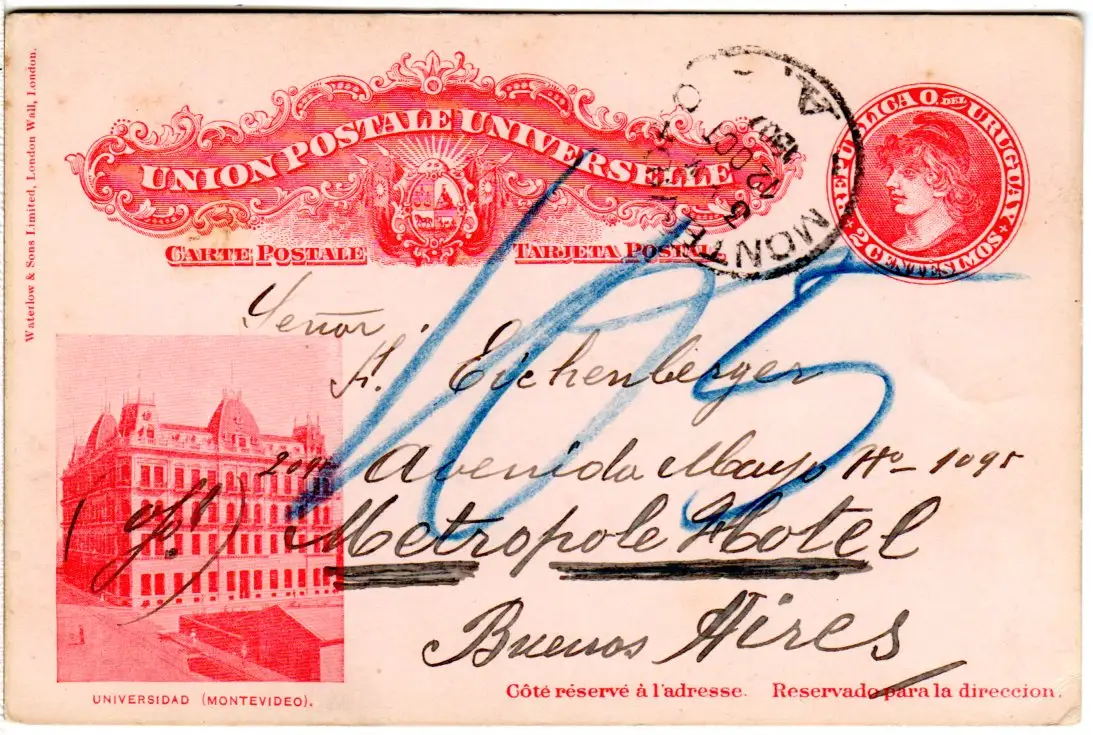 Waterlow & Sons Limited, London Wall, London.
UNION POSTALE UNIVERSELLE
CARTE POSTALE TARJETA POSTAL
REPUBLICA O. DEL URUGUAY
2 CENTESIMOS
MONTEVIDEO
12 OCT
Señor
H. Eichenberger
Avenida Mayo No 1095
Metropole Hotel
Buenos Aires
103
UNIVERSIDAD (MONTEVIDEO).
Côté réservé à l'adresse. Reservado para la direccion.